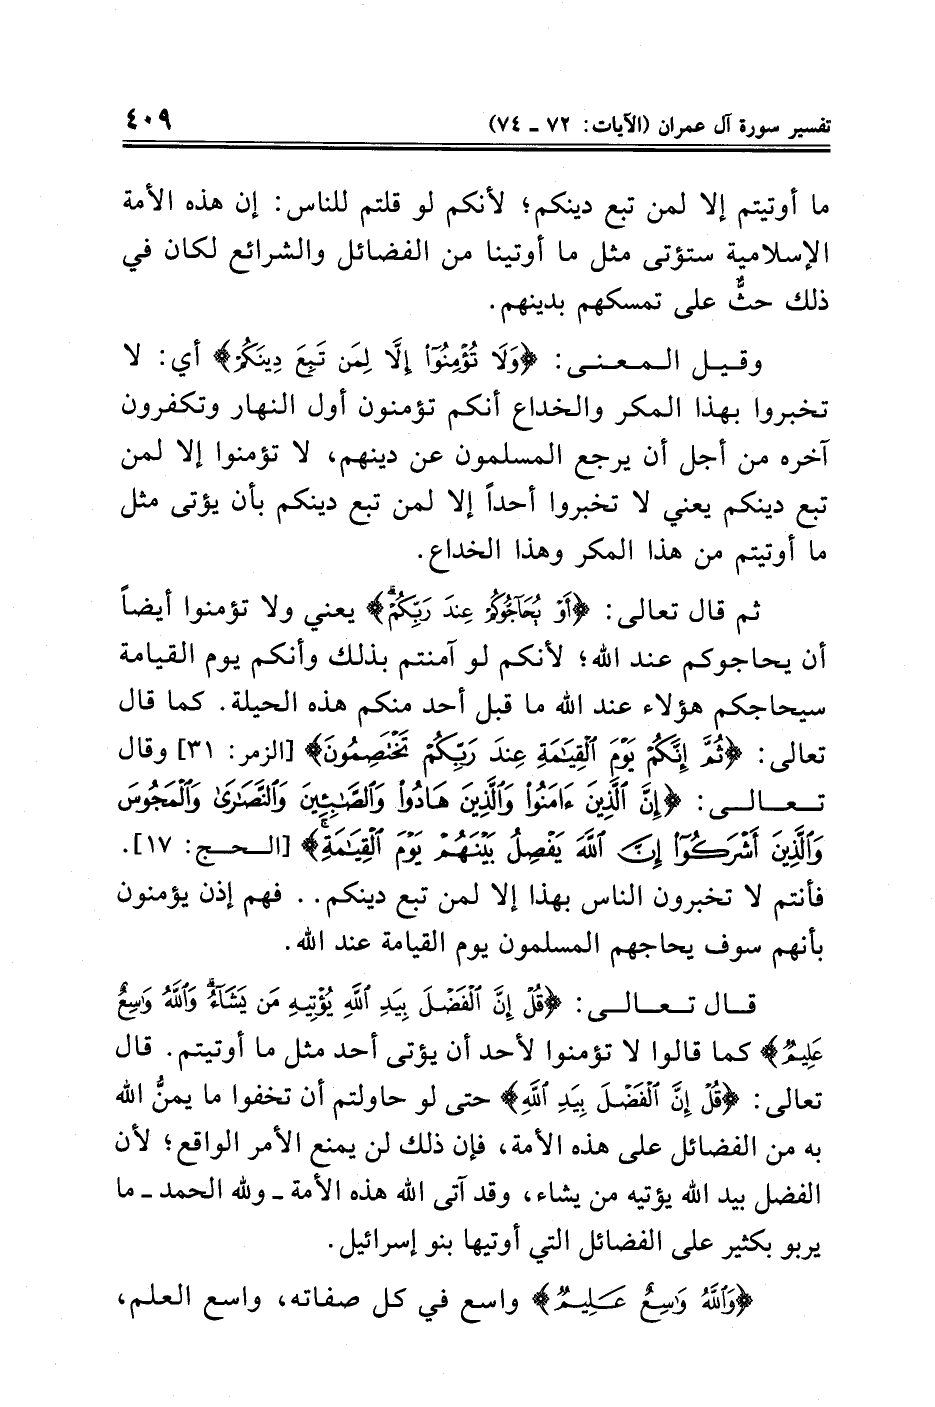 تفسير سورة آل عمران (الآيات: ٧٢ - ٧٤) ٤٠٩
ما أوتيتم إلا لمن تبع دينكم؛ لأنكم لو قلتم للناس: إن هذه الأمة
الإسلامية ستؤتى مثل ما أوتينا من الفضائل والشرائع لكان في
ذلك حثٌّ على تمسكهم بدينهم.
وقيل المعنى: ﴿وَلَا تُؤْمِنُوٓا۟ إِلَّا لِمَن تَبِعَ دِينَكُمْ﴾ أي: لا
تخبروا بهذا المكر والخداع أنكم تؤمنون أول النهار وتكفرون
آخره من أجل أن يرجع المسلمون عن دينهم، لا تؤمنوا إلا لمن
تبع دينكم يعني لا تخبروا أحداً إلا لمن تبع دينكم بأن يؤتى مثل
ما أوتيتم من هذا المكر وهذا الخداع.
ثم قال تعالى: ﴿أَوْ يُحَآجُّوكُمْ عِندَ رَبِّكُمْ﴾ يعني ولا تؤمنوا أيضاً
أن يحاجوكم عند الله؛ لأنكم لو آمنتم بذلك وأنكم يوم القيامة
سيحاجكم هؤلاء عند الله ما قبل أحد منكم هذه الحيلة. كما قال
تعالى: ﴿ثُمَّ إِنَّكُمْ يَوْمَ ٱلْقِيَٰمَةِ عِندَ رَبِّكُمْ تَخْتَصِمُونَ﴾ [الزمر: ٣١] وقال
تعالى: ﴿إِنَّ ٱلَّذِينَ ءَامَنُوا۟ وَٱلَّذِينَ هَادُوا۟ وَٱلصَّٰبِـِٔينَ وَٱلنَّصَٰرَىٰ وَٱلْمَجُوسَ
وَٱلَّذِينَ أَشْرَكُوٓا۟ إِنَّ ٱللَّهَ يَفْصِلُ بَيْنَهُمْ يَوْمَ ٱلْقِيَٰمَةِ﴾ [الحج: ١٧].
فأنتم لا تخبرون الناس بهذا إلا لمن تبع دينكم.. فهم إذن يؤمنون
بأنهم سوف يحاجهم المسلمون يوم القيامة عند الله.
قال تعالى: ﴿قُلْ إِنَّ ٱلْفَضْلَ بِيَدِ ٱللَّهِ يُؤْتِيهِ مَن يَشَآءُ وَٱللَّهُ وَٰسِعٌ
عَلِيمٌ﴾ كما قالوا لا تؤمنوا لأحد أن يؤتى أحد مثل ما أوتيتم. قال
تعالى: ﴿قُلْ إِنَّ ٱلْفَضْلَ بِيَدِ ٱللَّهِ﴾ حتى لو حاولتم أن تخفوا ما يمنُّ الله
به من الفضائل على هذه الأمة، فإن ذلك لن يمنع الأمر الواقع؛ لأن
الفضل بيد الله يؤتيه من يشاء، وقد آتى الله هذه الأمة - ولله الحمد - ما
يربو بكثير على الفضائل التي أوتيها بنو إسرائيل.
﴿وَٱللَّهُ وَٰسِعٌ عَلِيمٌ﴾ واسع في كل صفاته، واسع العلم،